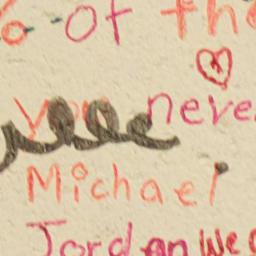 % of the
you never
Michael
Jordan We